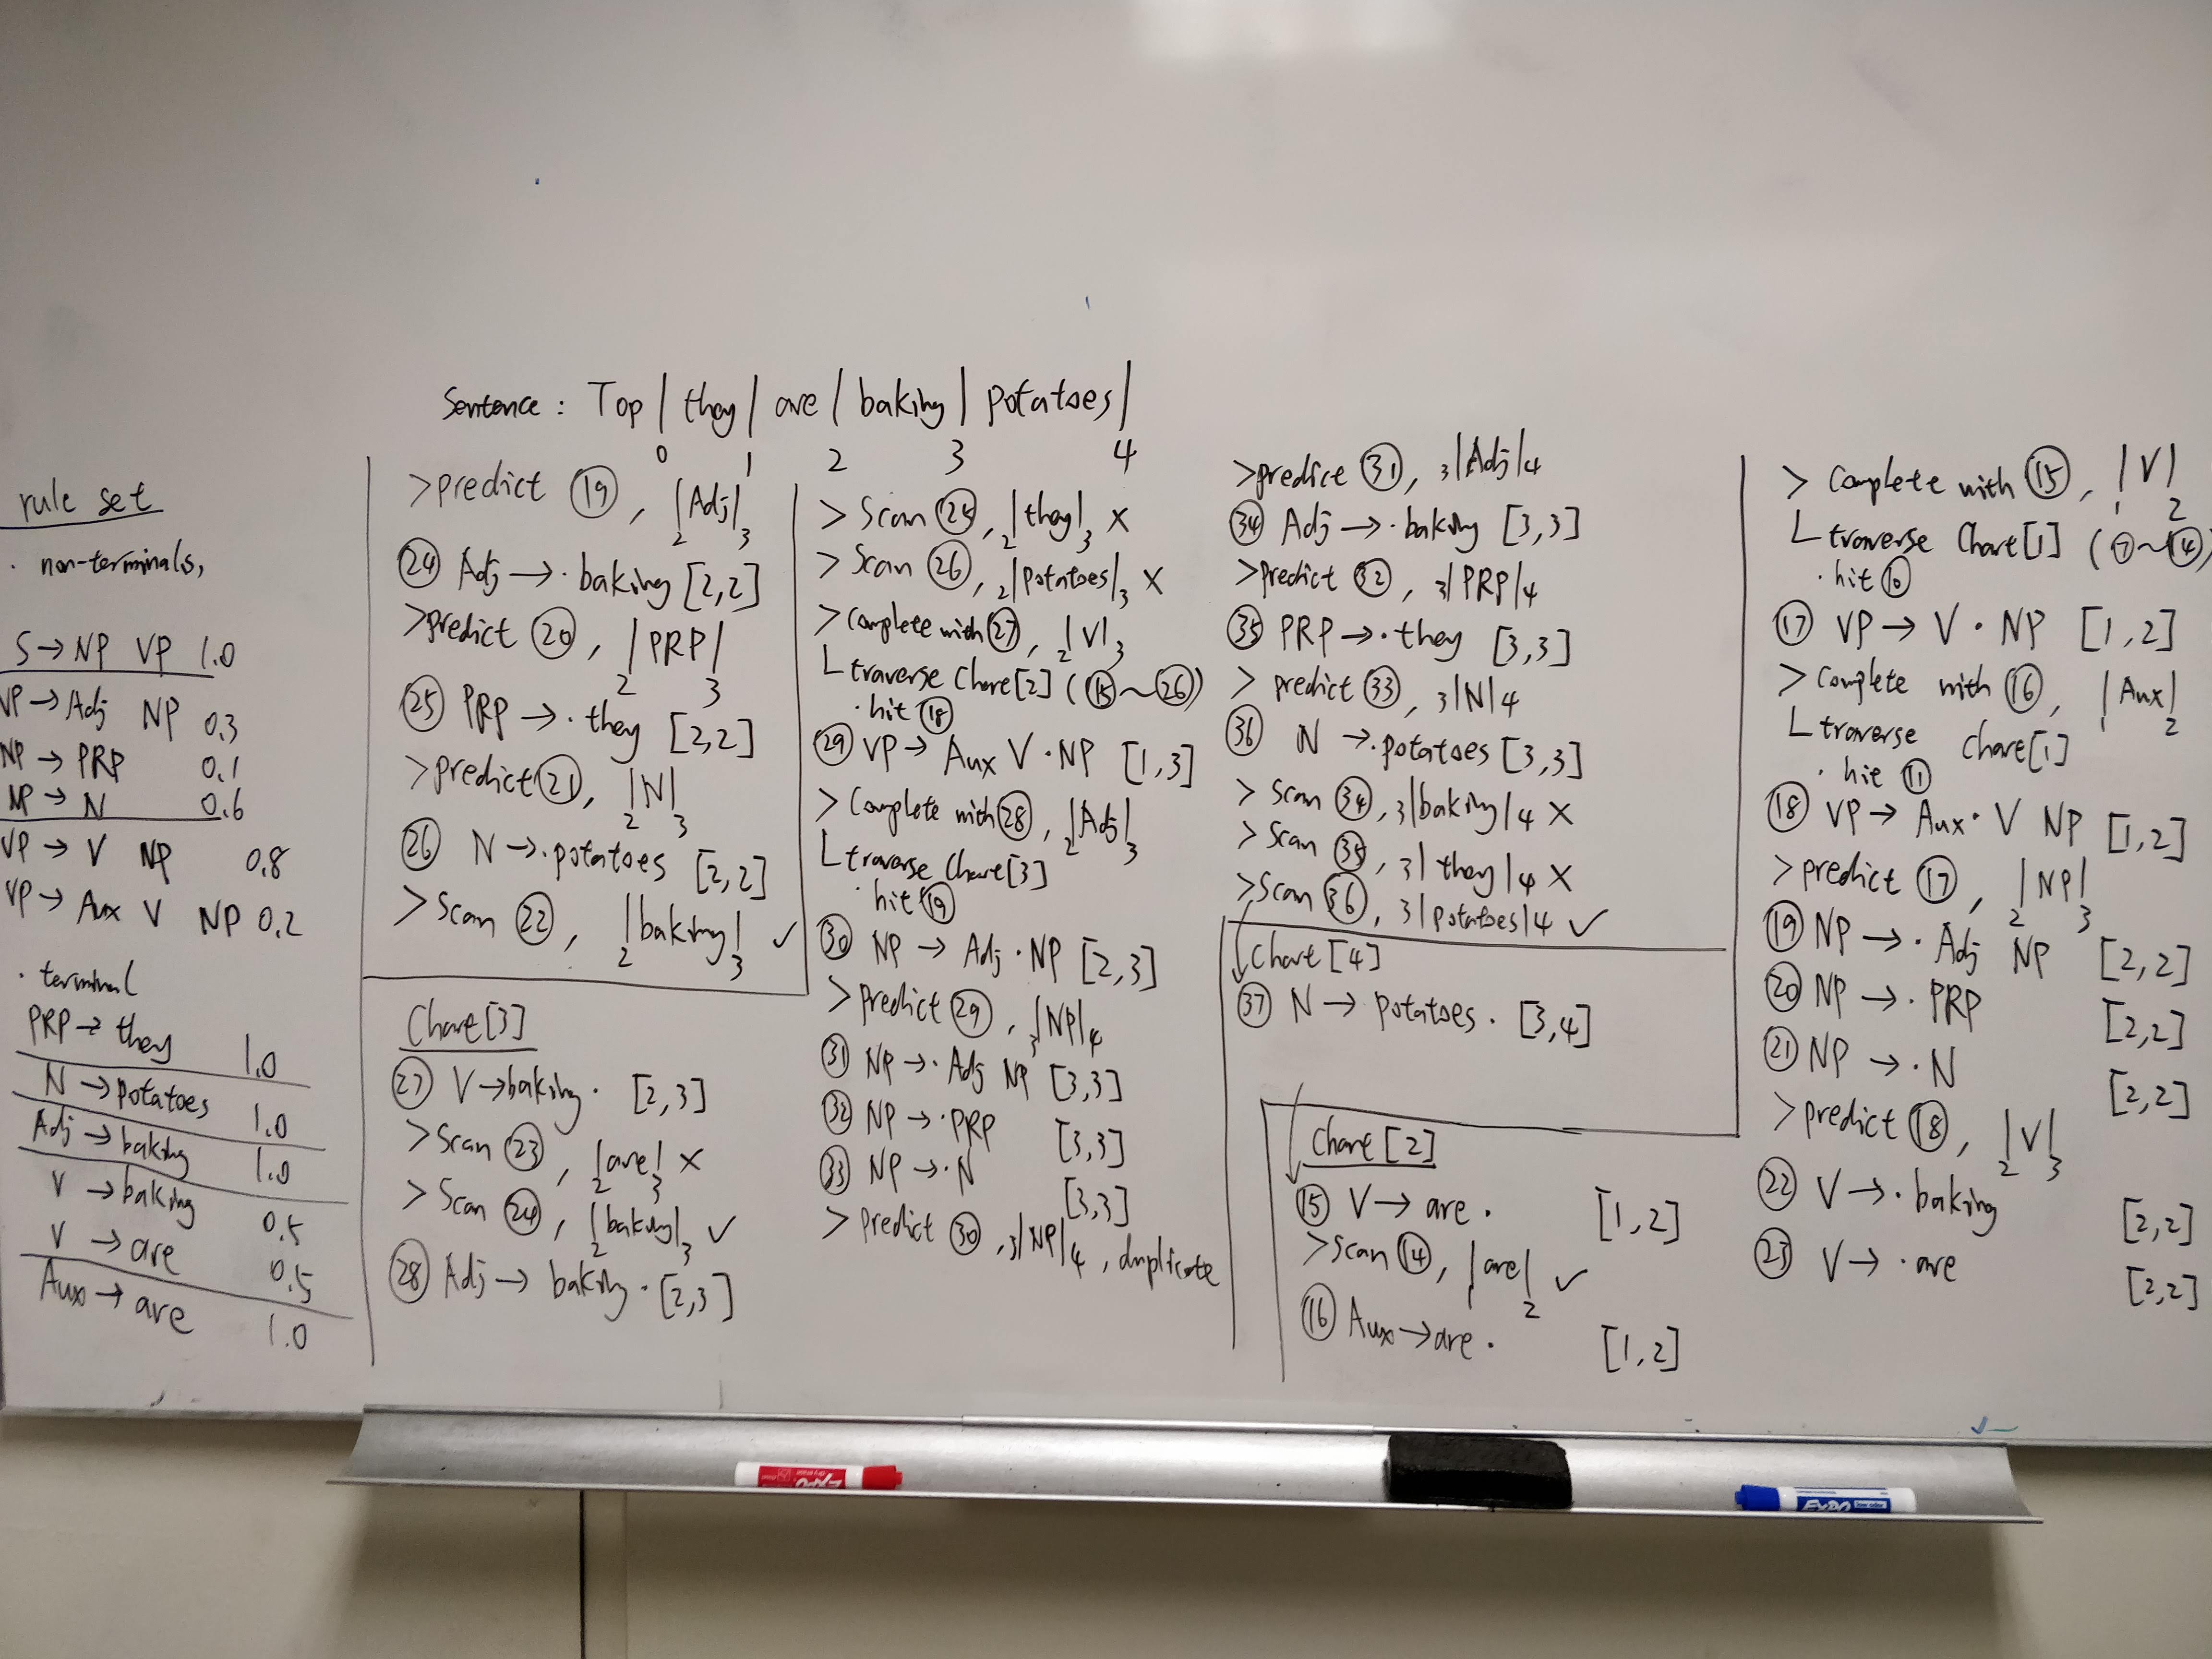 Sentence : Top | they | are | baking | potatoes |
0 1 2 3 4
rule set
· non-terminals,
S → NP VP 1.0
VP → Adj NP 0.3
NP → PRP 0.1
NP → N 0.6
VP → V NP 0.8
VP → Aux V NP 0.2
· terminal
PRP → they 1.0
N → potatoes 1.0
Adj → baking 1.0
V → baking 0.5
V → are 0.5
Aux → are 1.0
>predict ⑲, 2|Adj|3
㉔ Adj → · baking [2,2]
>predict ⑳, 2|PRP|3
㉕ PRP → · they [2,2]
>predict ㉑, 2|N|3
㉖ N → · potatoes [2,2]
> Scan ㉒, 2|baking|3 ✓
Chart[3]
㉗ V → baking · [2,3]
> Scan ㉓, 2|are|3 ×
> Scan ㉔, 2|baking|3 ✓
㉘ Adj → baking · [2,3]
> Scan ㉕, 2|they|3 ×
> Scan ㉖, 2|potatoes|3 ×
> Complete with ㉗, 2|V|3
└ traverse Chart[2] (⑮~㉖)
· hit ⑱
㉙ VP → Aux V · NP [1,3]
> Complete with ㉘, 2|Adj|3
└ traverse Chart[3]
· hit ⑲
㉚ NP → Adj · NP [2,3]
> predict ㉙, 3|NP|4
㉛ NP → · Adj NP [3,3]
㉜ NP → · PRP [3,3]
㉝ NP → · N [3,3]
> predict ㉚, 3|NP|4, duplicate
>predict ㉛, 3|Adj|4
㉞ Adj → · baking [3,3]
>predict ㉜, 3|PRP|4
㉟ PRP → · they [3,3]
> predict ㉝, 3|N|4
㊱ N → · potatoes [3,3]
> Scan ㉞, 3|baking|4 ×
> Scan ㉟, 3|they|4 ×
>Scan ㊱, 3|potatoes|4 ✓
Chart[4]
㊲ N → potatoes · [3,4]
Chart[2]
⑮ V → are · [1,2]
>Scan ⑭, 1|are|2 ✓
⑯ Aux → are · [1,2]
> Complete with ⑮, 1|V|2
└ traverse Chart[1] (⑦~⑭)
· hit ⑩
⑰ VP → V · NP [1,2]
> Complete with ⑯, 1|Aux|2
└ traverse Chart[1]
· hit ⑪
⑱ VP → Aux · V NP [1,2]
>predict ⑰, 2|NP|3
⑲ NP → · Adj NP [2,2]
⑳ NP → · PRP [2,2]
㉑ NP → · N [2,2]
>predict ⑱, 2|V|3
㉒ V → · baking [2,2]
㉓ V → · are [2,2]
EXPO
EXPO